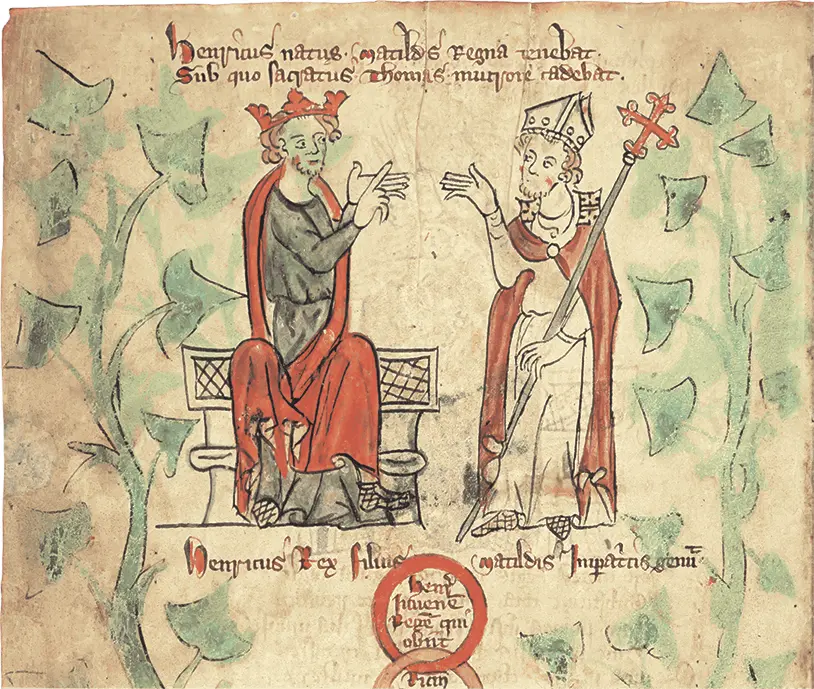 Henricus natus· Matildis Regna tenebat·
Sub quo sacratus Thomas mucrone cadebat.
Henricus Rex filius Matildis Inpatcis genuı̄
henr̄
iuuenē
Regē qui
obiit